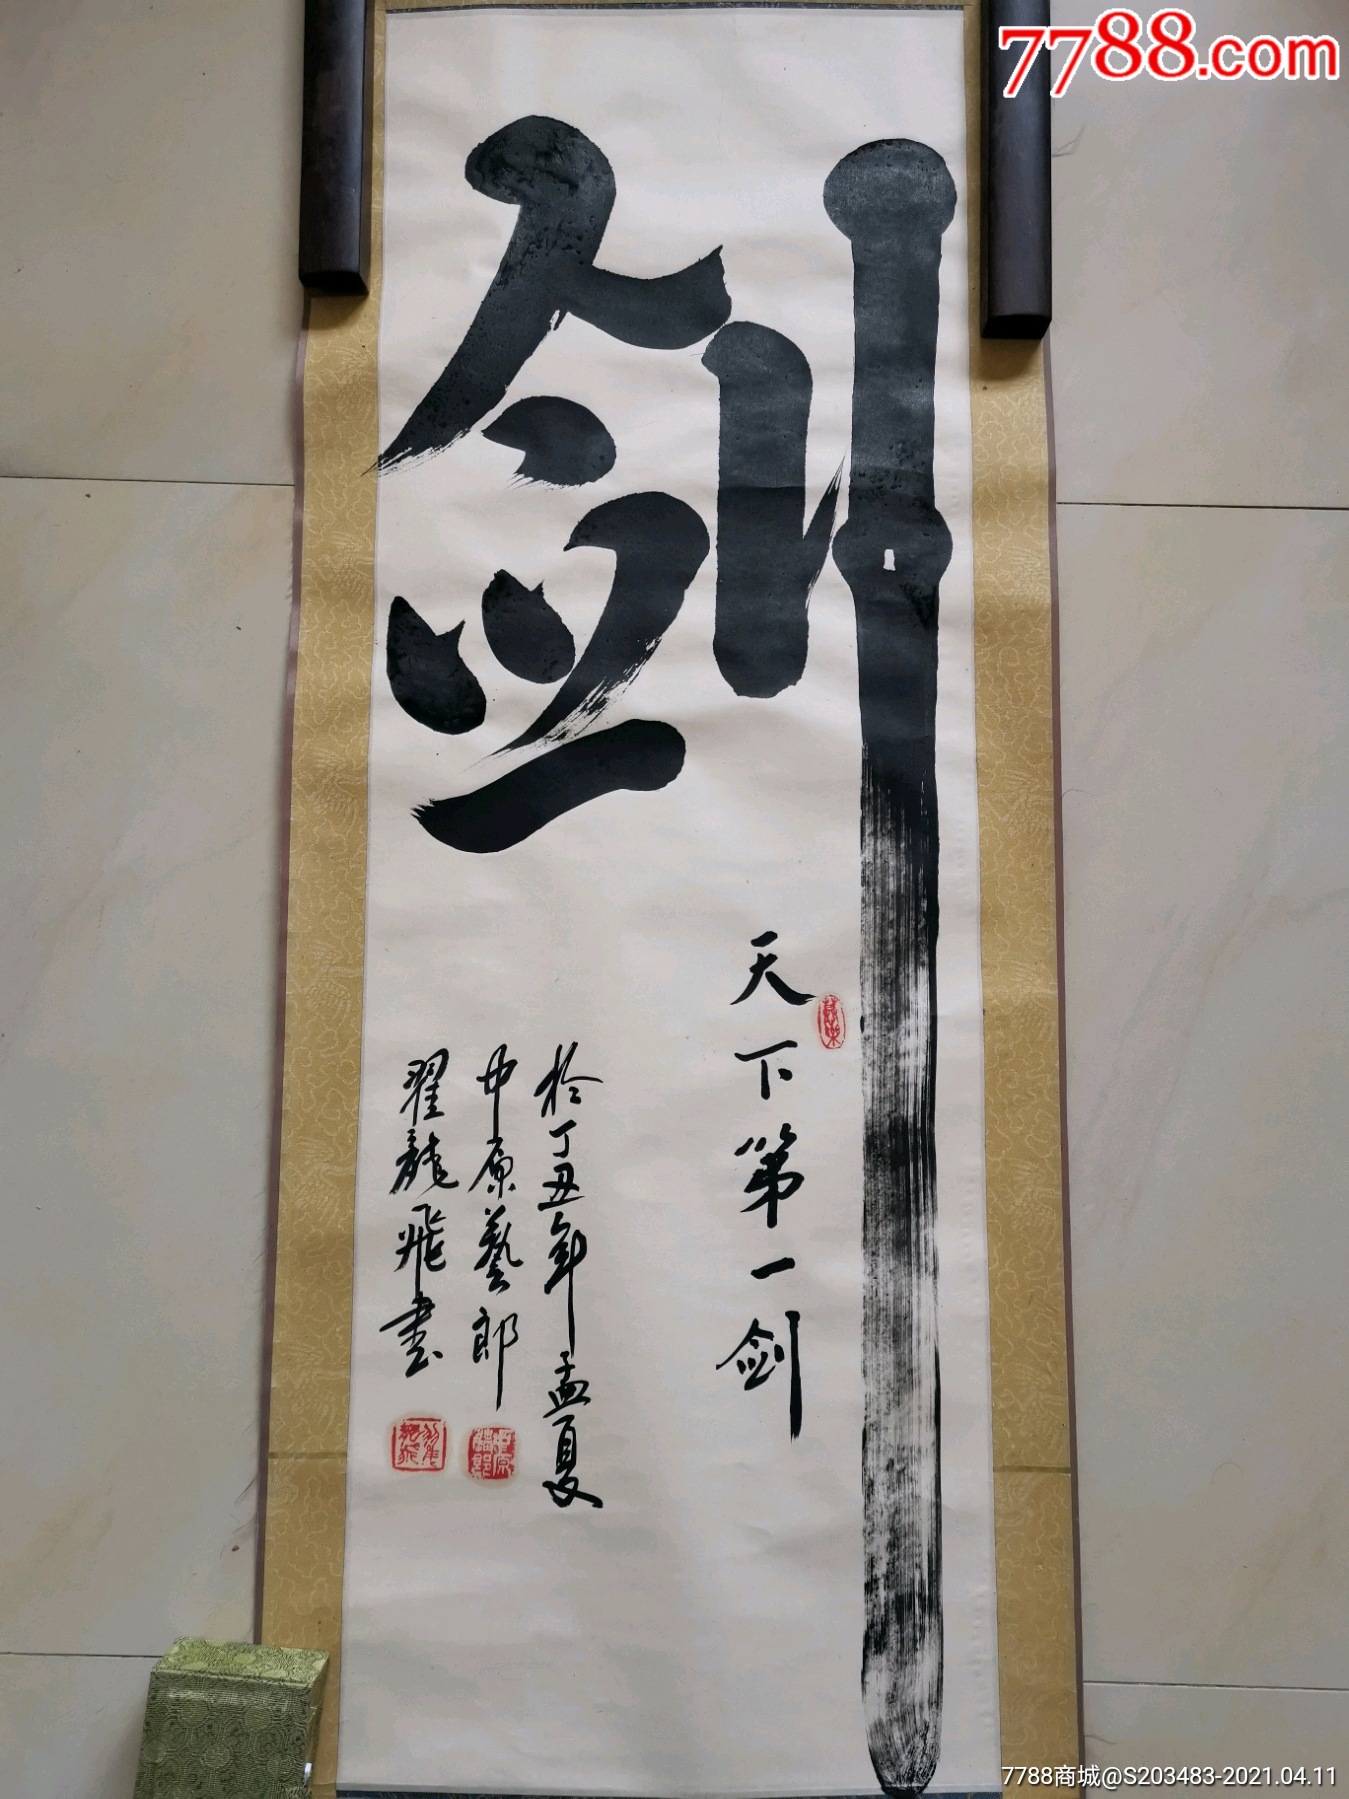 7788.com
剑
天下第一剑
於丁丑年孟夏
中原藝郎
翟龍飛書
7788商城@S203483-2021.04.11